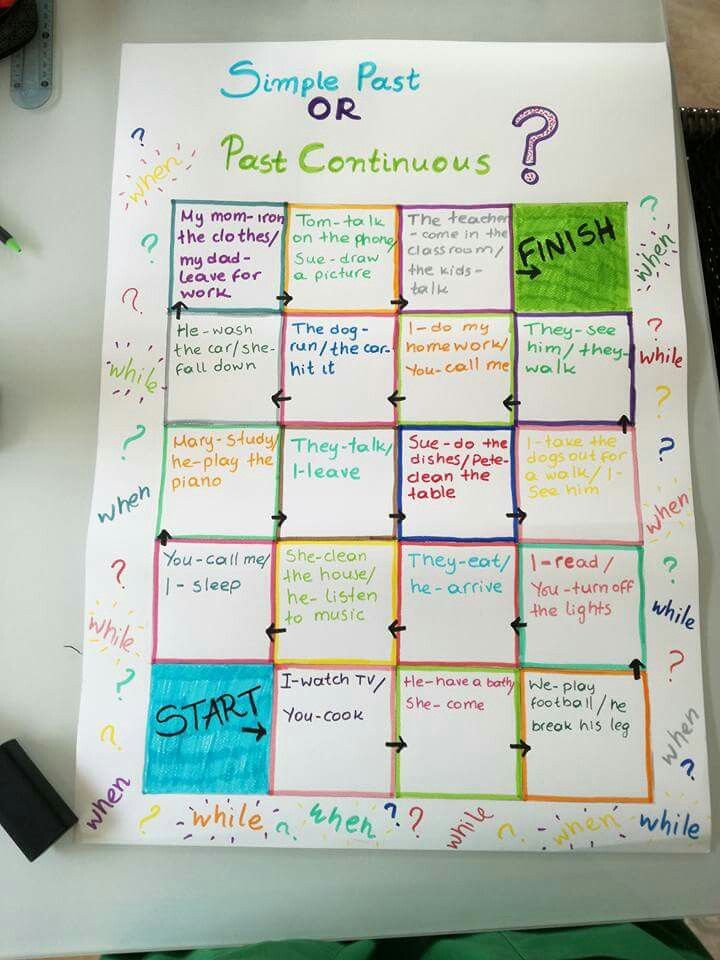 Simple Past
OR
Past Continuous ?
?
when
?
?
while
?
when
?
while
?
?
when
My mom- iron
the clothes/
my dad-
leave for
work
Tom- talk
on the phone/
Sue - draw
a picture
The teacher
- come in the
classroom/
the kids -
talk
FINISH
He - wash
the car/she-
fall down
The dog -
run/the car-
hit it
I - do my
homework/
You - call me
They - see
him/they-
walk
Mary - study/
he - play the
piano
They - talk/
I - leave
Sue - do the
dishes/Pete-
clean the
table
I - take the
dogs out for
a walk/ I -
see him
You - call me/
I - sleep
She-clean
the house/
he - listen
to music
They - eat/
he - arrive
I - read /
You - turn off
the lights
START
I-watch TV/
You - cook
He - have a bath/
She - come
We - play
football/he
break his leg
?
when
?
while
?
?
when
?
while
?
when
?
? while ? when ? ? while ? when while